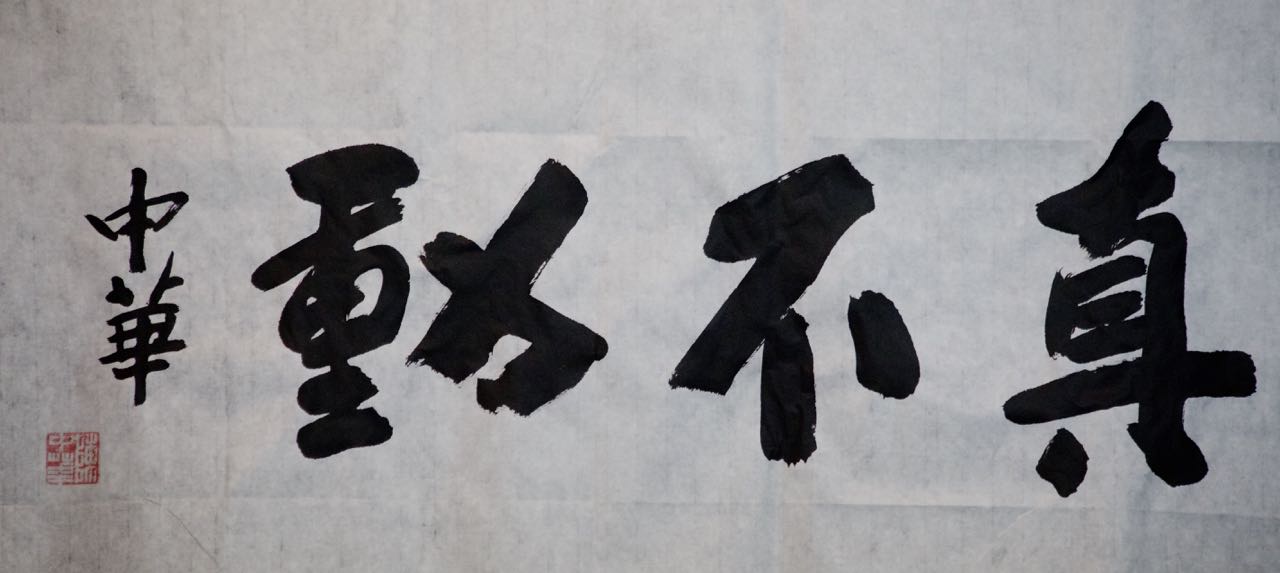 真不動
中華